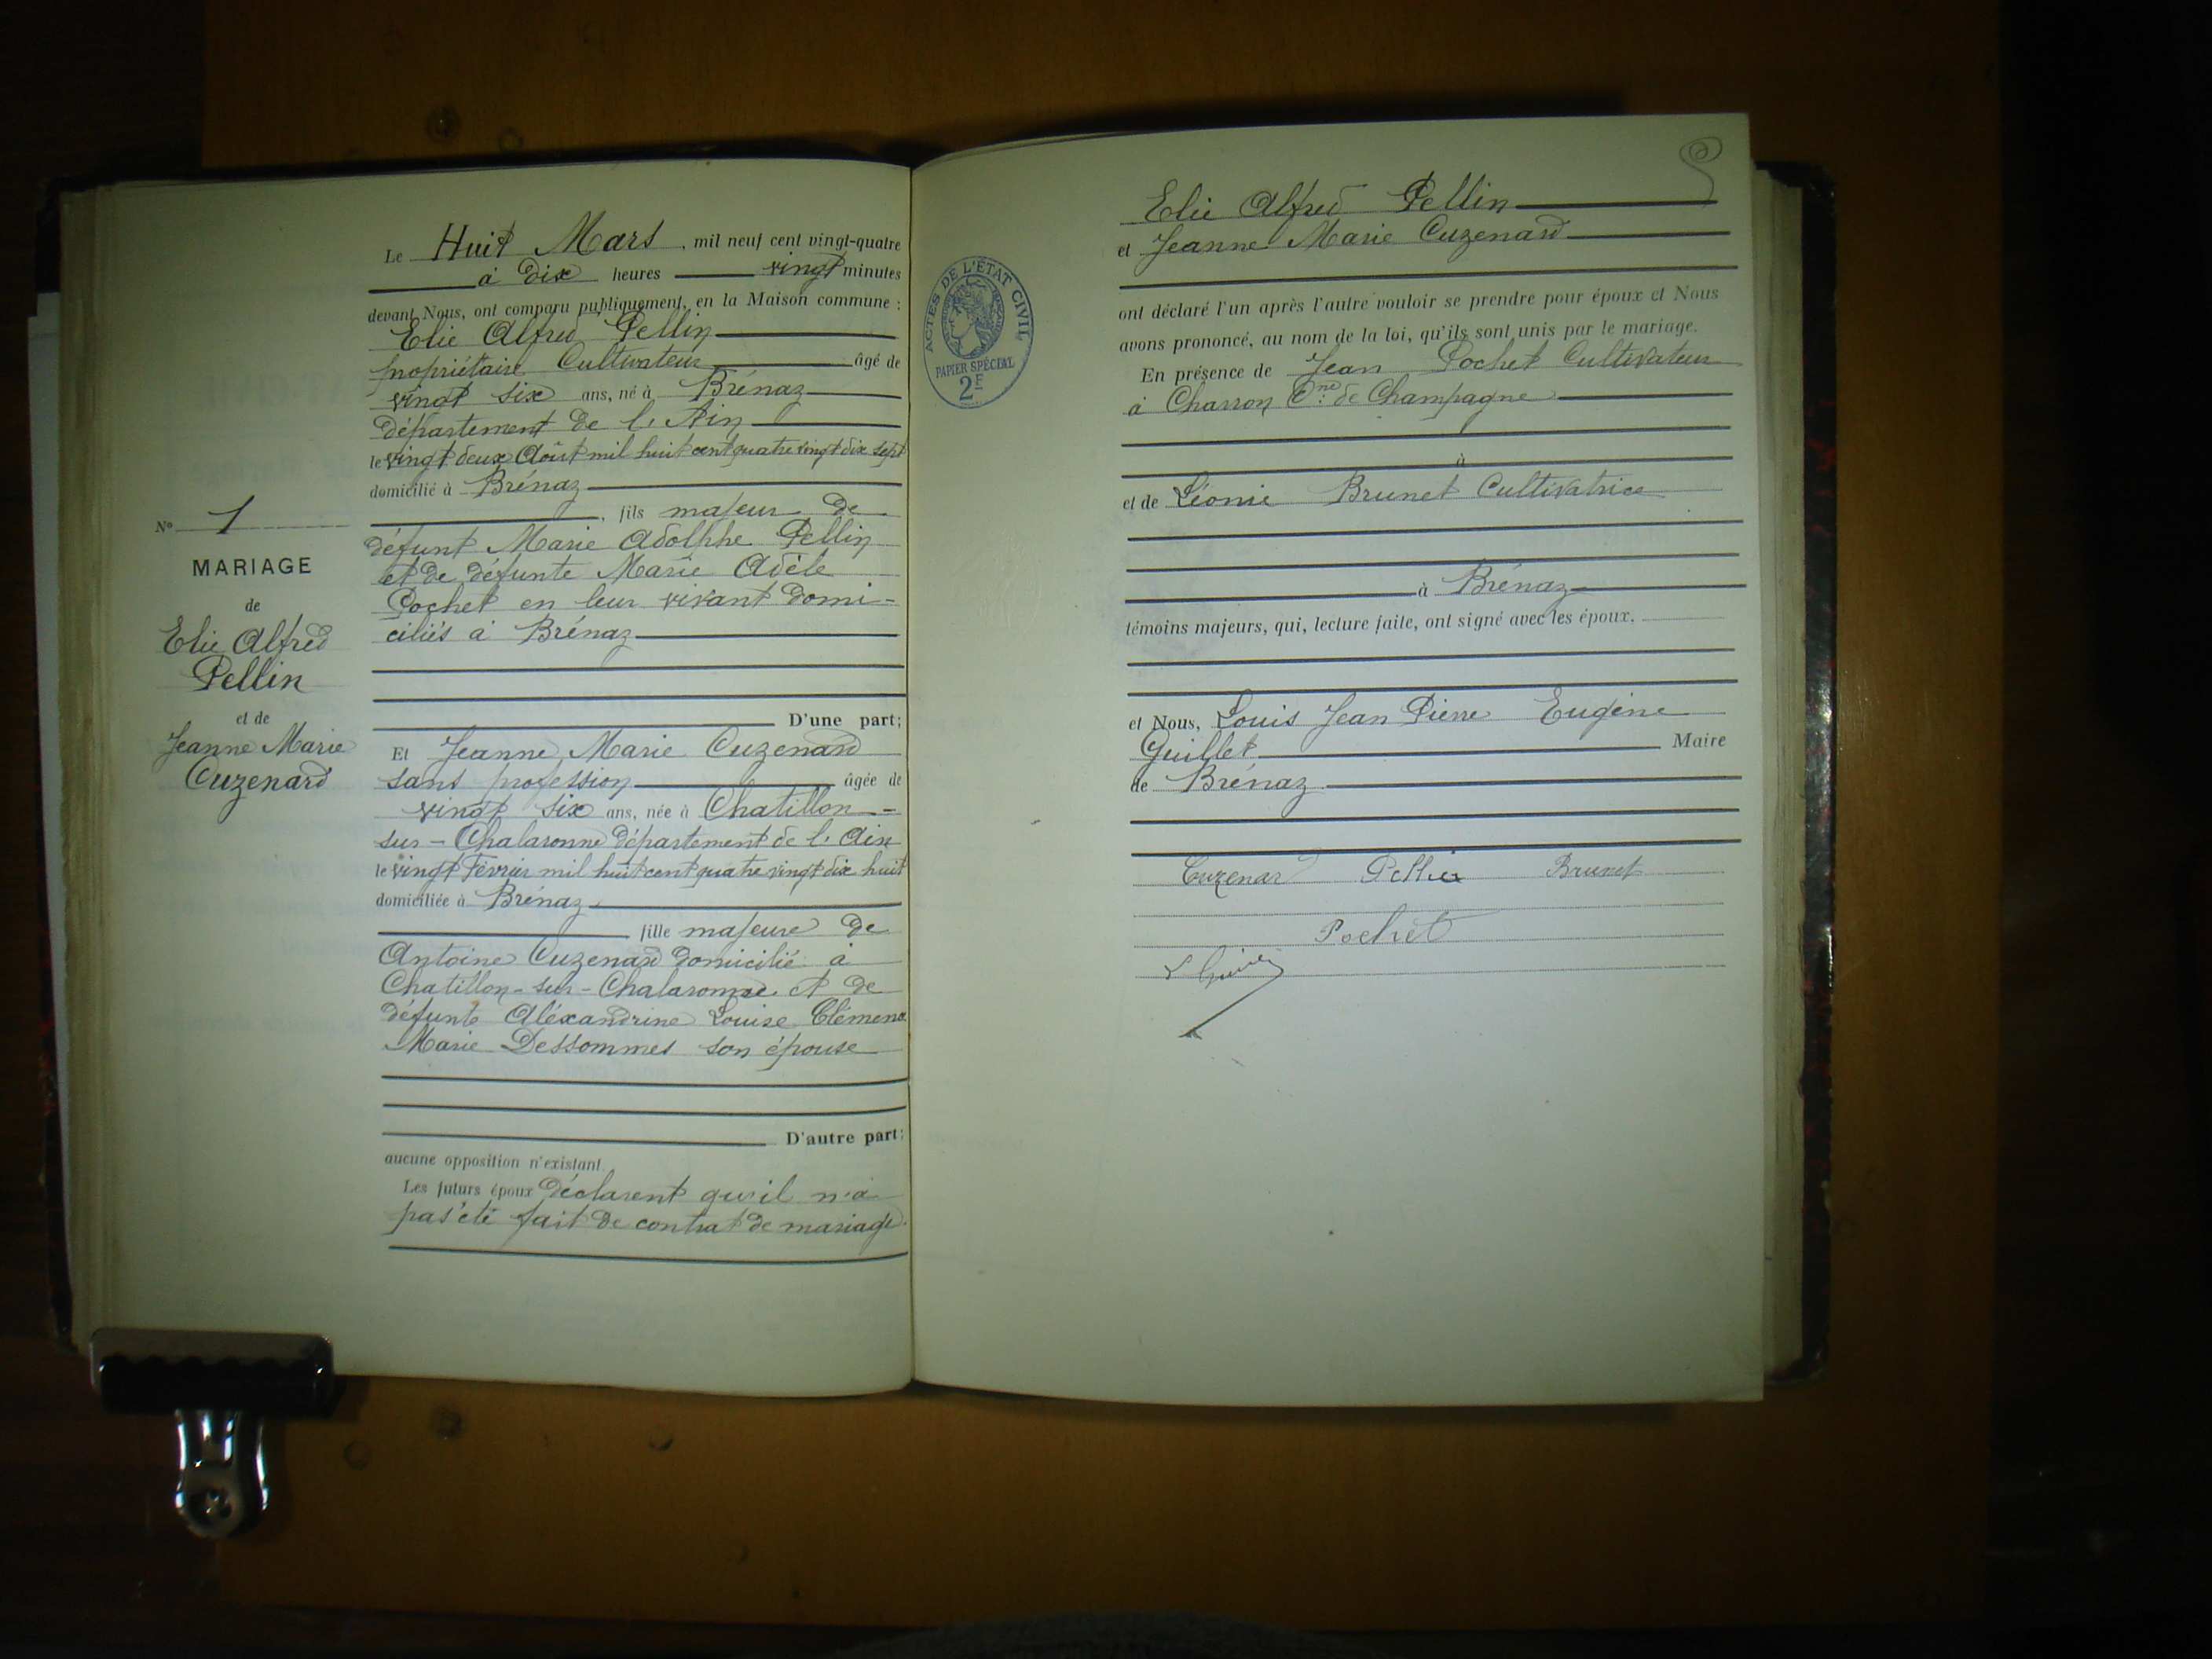 Le Huit Mars, mil neuf cent vingt-quatre
à dix heures vingt minutes
devant Nous, ont comparu publiquement, en la Maison commune :
Elie Alfred Pellin
propriétaire Cultivateur âgé de
vingt six ans, né à Brénaz
département de l'Ain
le vingt deux Août mil huit cent quatre vingt dix sept
domicilié à Brénaz
, fils majeur de
défunt Marie Adolphe Pellin
et de défunte Marie Adèle
Pochet en leur vivant domi-
ciliés à Brénaz
D'une part;
Et Jeanne Marie Cuzenard
sans profession âgée de
vingt six ans, née à Chatillon-
sur-Chalaronne département de l'Ain
le vingt Février mil huit cent quatre vingt dix huit
domiciliée à Brénaz
fille majeure de
Antoine Cuzenard domicilié à
Chatillon-sur-Chalaronne et de
défunte Aléxandrine Louise Clémence
Marie Dessommes son épouse
D'autre part;
aucune opposition n'existant.
Les futurs époux déclarent qu'il n'a
pas été fait de contrat de mariage.
N° 1
MARIAGE
de
Elie Alfred
Pellin
et de
Jeanne Marie
Cuzenard
ACTES DE L'ÉTAT CIVIL
PAPIER SPÉCIAL
2F
Elie Alfred Pellin
et Jeanne Marie Cuzenard
ont déclaré l'un après l'autre vouloir se prendre pour époux et Nous
avons prononcé, au nom de la loi, qu'ils sont unis par le mariage.
En présence de Jean Pochet Cultivateur
à Charron Cne de Champagne
à
et de Léonie Brunet Cultivatrice
à Brénaz
témoins majeurs, qui, lecture faite, ont signé avec les époux.
et Nous, Louis Jean Pierre Eugène
Guillet Maire
de Brénaz
Cuzenard Pellin Brunet
Pochet